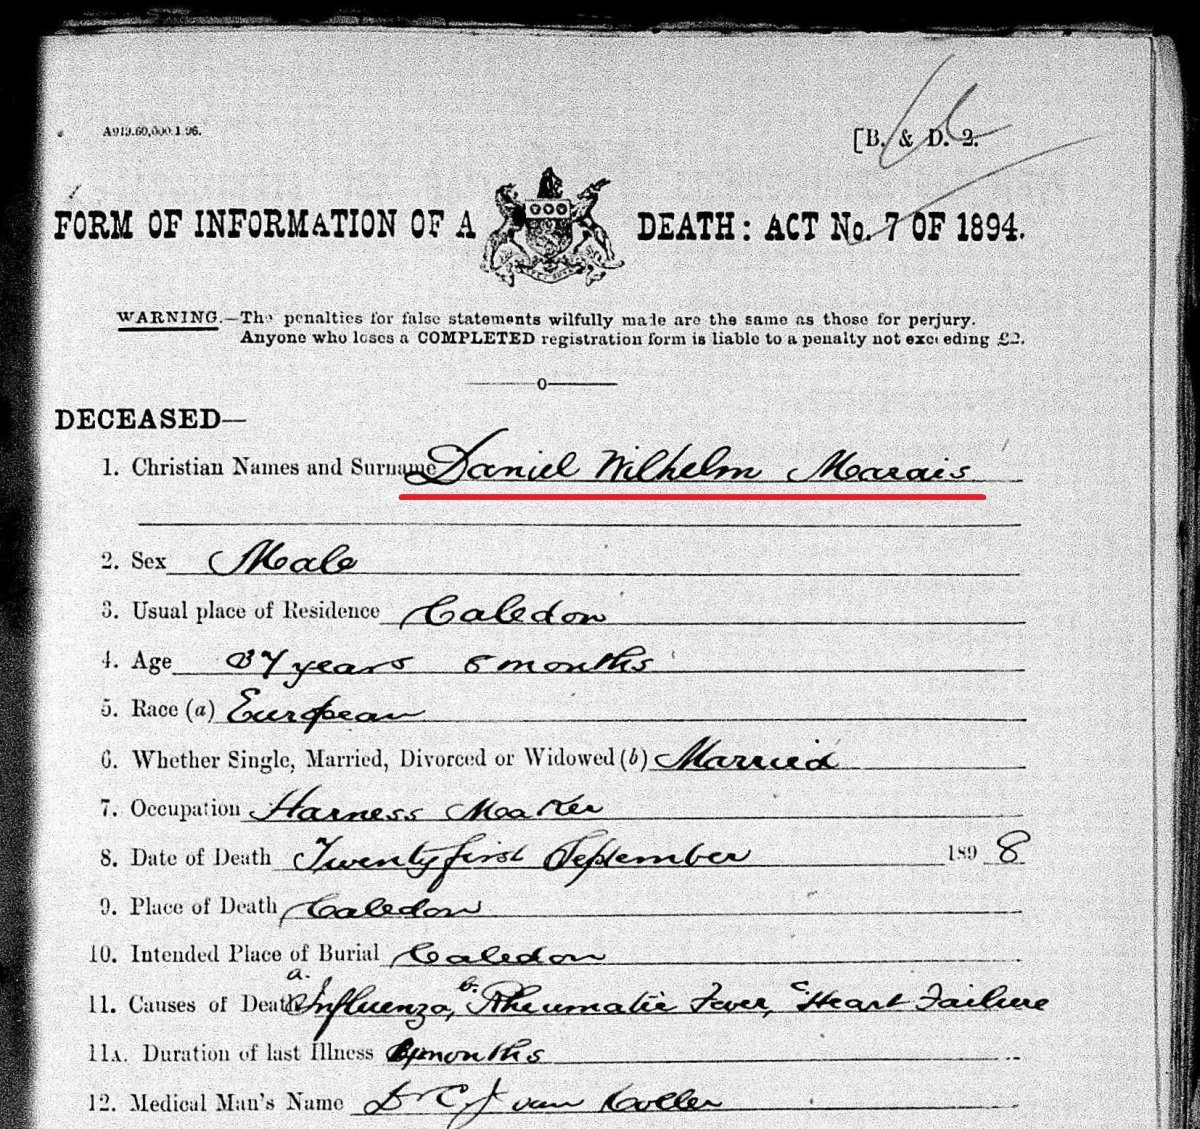 A919.60,000.1.96.
[B. & D. 2.
FORM OF INFORMATION OF A DEATH: ACT No. 7 OF 1894.
WARNING.—The penalties for false statements wilfully made are the same as those for perjury.
Anyone who loses a COMPLETED registration form is liable to a penalty not exceeding £2.
DECEASED—
1. Christian Names and Surname Daniel Wilhelm Marais
2. Sex Male
3. Usual place of Residence Caledon
4. Age 37 years 6 months
5. Race (a) European
6. Whether Single, Married, Divorced or Widowed (b) Married
7. Occupation Harness Maker
8. Date of Death Twenty first September 1898
9. Place of Death Caledon
10. Intended Place of Burial Caledon
11. Causes of Death a. Influenza, b. Rheumatic Fever, c Heart Failure
11A. Duration of last Illness months
12. Medical Man's Name Dr C J van